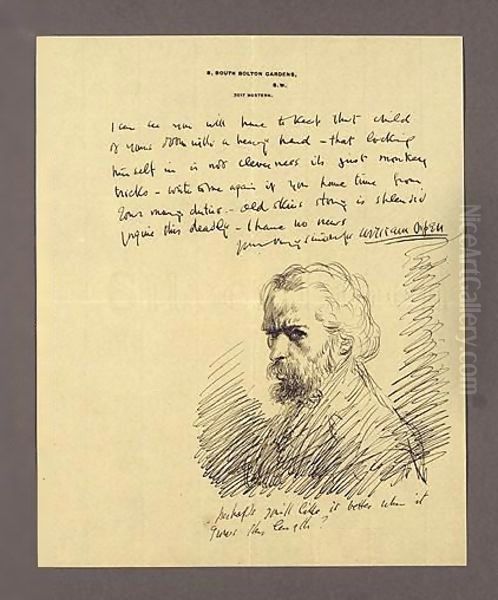 8, SOUTH BOLTON GARDENS,
S.W.
3017 WESTERN.
I can see you will have to keep that child
of yours down with a heavy hand – that locking
himself in is not cleverness its just monkey
tricks – write to me again if you have time from
your many duties – old story is splendid
forgive this deadly – I have no news
yours very sincerely William Orpen
perhaps you'll like it better when it
grows this length ?
NiceArtGallery.com